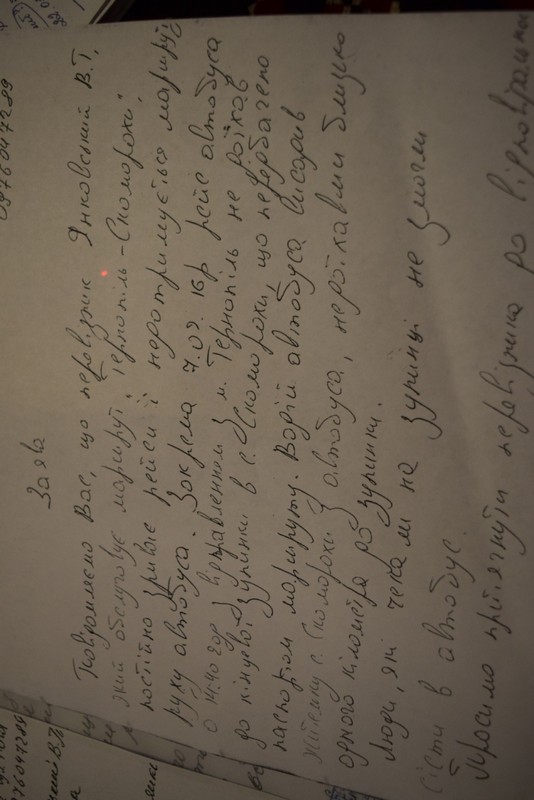 0976047289
Заява
Повідомляємо Вас, що перевізник Янковський В.Т,
який обслуговує маршрут: Тернопіль-Скоморохи,
постійно зриває рейси і недотримується маршруту
руху автобуса. Зокрема 7.09. 16р. рейс автобуса
о год з відправленням з м. Тернопіль не доїхав
до кінцевої зупинки в с. Скоморохи, що передбачено
паспортом маршруту. Водій автобуса висадив
жительку с. Скоморохи з автобуса, недоїхавши близько
одного кілометра до зупинки.
Люди, які чекали на зупинці не змогли
сісти в автобус.
Просимо притягнути перевізника до